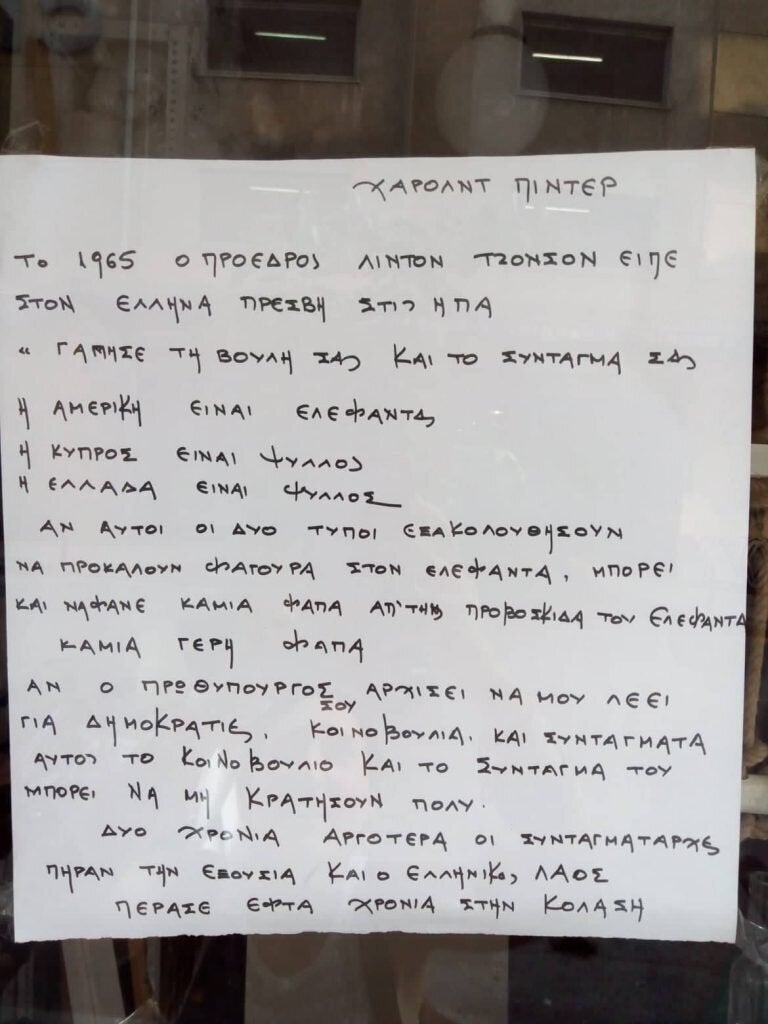 ΧΑΡΟΛΝΤ ΠΙΝΤΕΡ
ΤΟ 1965 Ο ΠΡΟΕΔΡΟΣ ΛΙΝΤΟΝ ΤΖΟΝΣΟΝ ΕΙΠΕ
ΣΤΟΝ ΕΛΛΗΝΑ ΠΡΕΣΒΗ ΣΤΙΣ ΗΠΑ
“ ΓΑΜΗΣΕ ΤΗ ΒΟΥΛΗ ΣΑΣ ΚΑΙ ΤΟ ΣΥΝΤΑΓΜΑ ΣΑΣ
Η ΑΜΕΡΙΚΗ ΕΙΝΑΙ ΕΛΕΦΑΝΤΑΣ
Η ΚΥΠΡΟΣ ΕΙΝΑΙ ΨΥΛΛΟΣ
Η ΕΛΛΑΔΑ ΕΙΝΑΙ ΨΥΛΛΟΣ
ΑΝ ΑΥΤΟΙ ΟΙ ΔΥΟ ΤΥΠΟΙ ΕΞΑΚΟΛΟΥΘΗΣΟΥΝ
ΝΑ ΠΡΟΚΑΛΟΥΝ ΦΑΓΟΥΡΑ ΣΤΟΝ ΕΛΕΦΑΝΤΑ, ΜΠΟΡΕΙ
ΚΑΙ ΝΑ ΦΑΝΕ ΚΑΜΙΑ ΦΑΠΑ ΑΠ'ΤΗΝ ΠΡΟΒΟΣΚΙΔΑ ΤΟΥ ΕΛΕΦΑΝΤΑ
ΚΑΜΙΑ ΓΕΡΗ ΦΑΠΑ
ΑΝ Ο ΠΡΩΘΥΠΟΥΡΓΟΣ ΣΟΥ ΑΡΧΙΣΕΙ ΝΑ ΜΟΥ ΛΕΕΙ
ΓΙΑ ΔΗΜΟΚΡΑΤΙΕΣ, ΚΟΙΝΟΒΟΥΛΙΑ, ΚΑΙ ΣΥΝΤΑΓΜΑΤΑ
ΑΥΤΟΣ ΤΟ ΚΟΙΝΟΒΟΥΛΙΟ ΚΑΙ ΤΟ ΣΥΝΤΑΓΜΑ ΤΟΥ
ΜΠΟΡΕΙ ΝΑ ΜΗ ΚΡΑΤΗΣΟΥΝ ΠΟΛΥ.
ΔΥΟ ΧΡΟΝΙΑ ΑΡΓΟΤΕΡΑ ΟΙ ΣΥΝΤΑΓΜΑΤΑΡΧΕΣ
ΠΗΡΑΝ ΤΗΝ ΕΞΟΥΣΙΑ ΚΑΙ Ο ΕΛΛΗΝΙΚΟΣ ΛΑΟΣ
ΠΕΡΑΣΕ ΕΦΤΑ ΧΡΟΝΙΑ ΣΤΗΝ ΚΟΛΑΣΗ